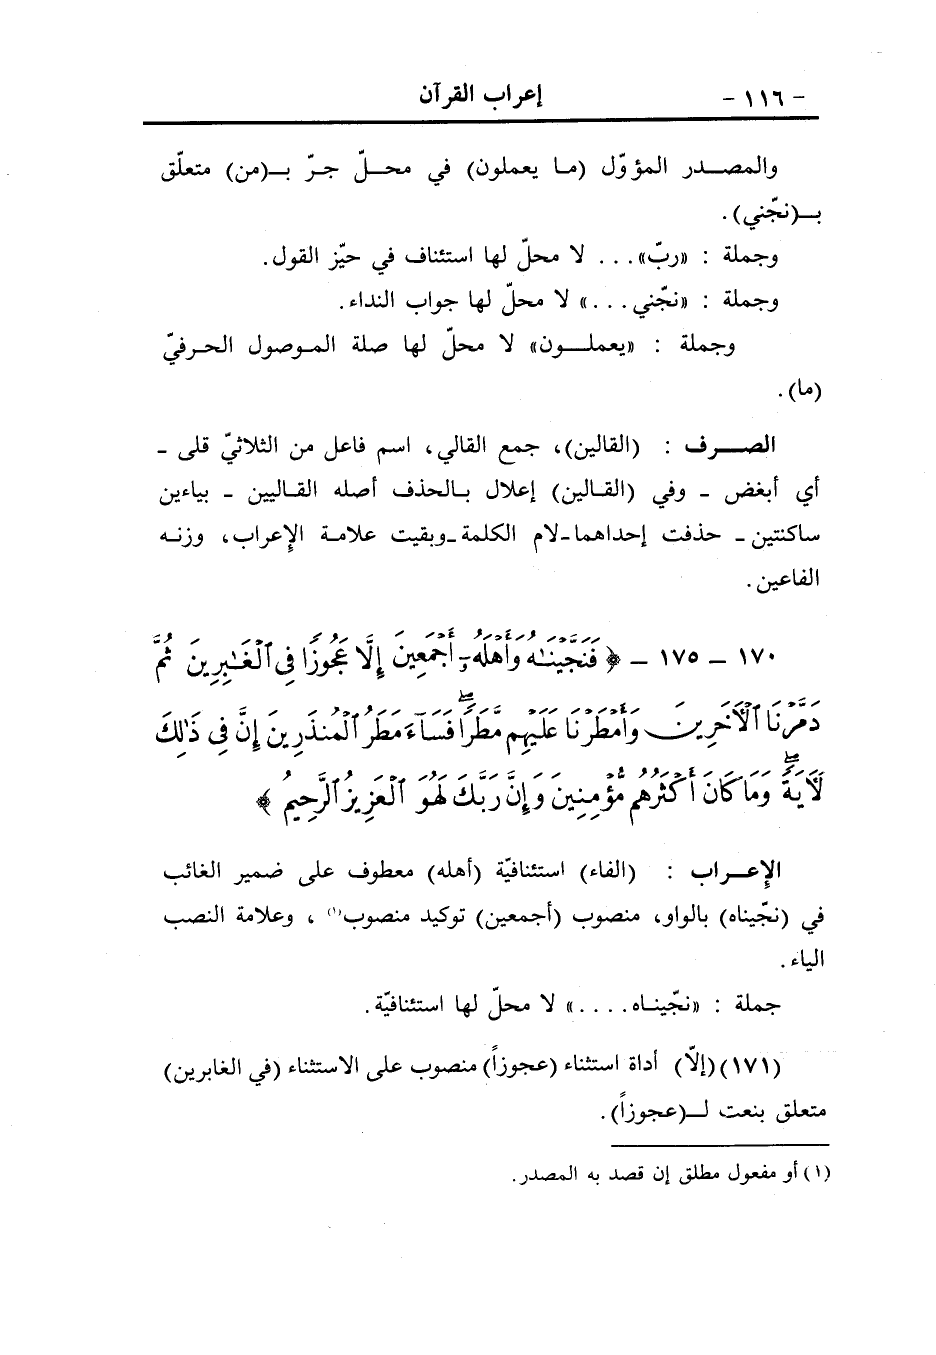 - ١١٦ - إعراب القرآن
والمصـدر المؤوّل (ما يعملون) في محـلّ جـرّ بـ(من) متعلّق
بـ(نجّني).
وجملة : «ربّ»... لا محلّ لها استئناف في حيّز القول.
وجملة : «نجّني...» لا محلّ لها جواب النداء.
وجملة : «يعملـون» لا محلّ لها صلة المـوصول الحـرفيّ
(ما).
الصـرف : (القالين)، جمع القالي، اسم فاعل من الثلاثيّ قلى -
أي أبغض - وفي (القـالين) إعلال بـالحذف أصله القـاليين - بياءين
ساكنتين - حذفت إحداهما-لام الكلمة-وبقيت علامـة الإعراب، وزنـه
الفاعين.
١٧٠ - ١٧٥ - ﴿ فَنَجَّيْنَٰهُ وَأَهْلَهُۥٓ أَجْمَعِينَ إِلَّا عَجُوزًا فِى ٱلْغَٰبِرِينَ ثُمَّ
دَمَّرْنَا ٱلْأَخَرِينَ وَأَمْطَرْنَا عَلَيْهِم مَّطَرًا ۖ فَسَآءَ مَطَرُ ٱلْمُنذَرِينَ إِنَّ فِى ذَٰلِكَ
لَأَيَةً ۖ وَمَا كَانَ أَكْثَرُهُم مُّؤْمِنِينَ وَإِنَّ رَبَّكَ لَهُوَ ٱلْعَزِيزُ ٱلرَّحِيمُ ﴾
الإعـراب : (الفاء) استئنافيّة (أهله) معطوف على ضمير الغائب
في (نجّيناه) بالواو، منصوب (أجمعين) توكيد منصوب(١) ، وعلامة النصب
الياء.
جملة : «نجّينـاه....» لا محلّ لها استئنافيّة.
(١٧١)(إلاّ) أداة استثناء (عجوزاً) منصوب على الاستثناء (في الغابرين)
متعلق بنعت لـ(عجوزاً).
(١) أو مفعول مطلق إن قصد به المصدر.